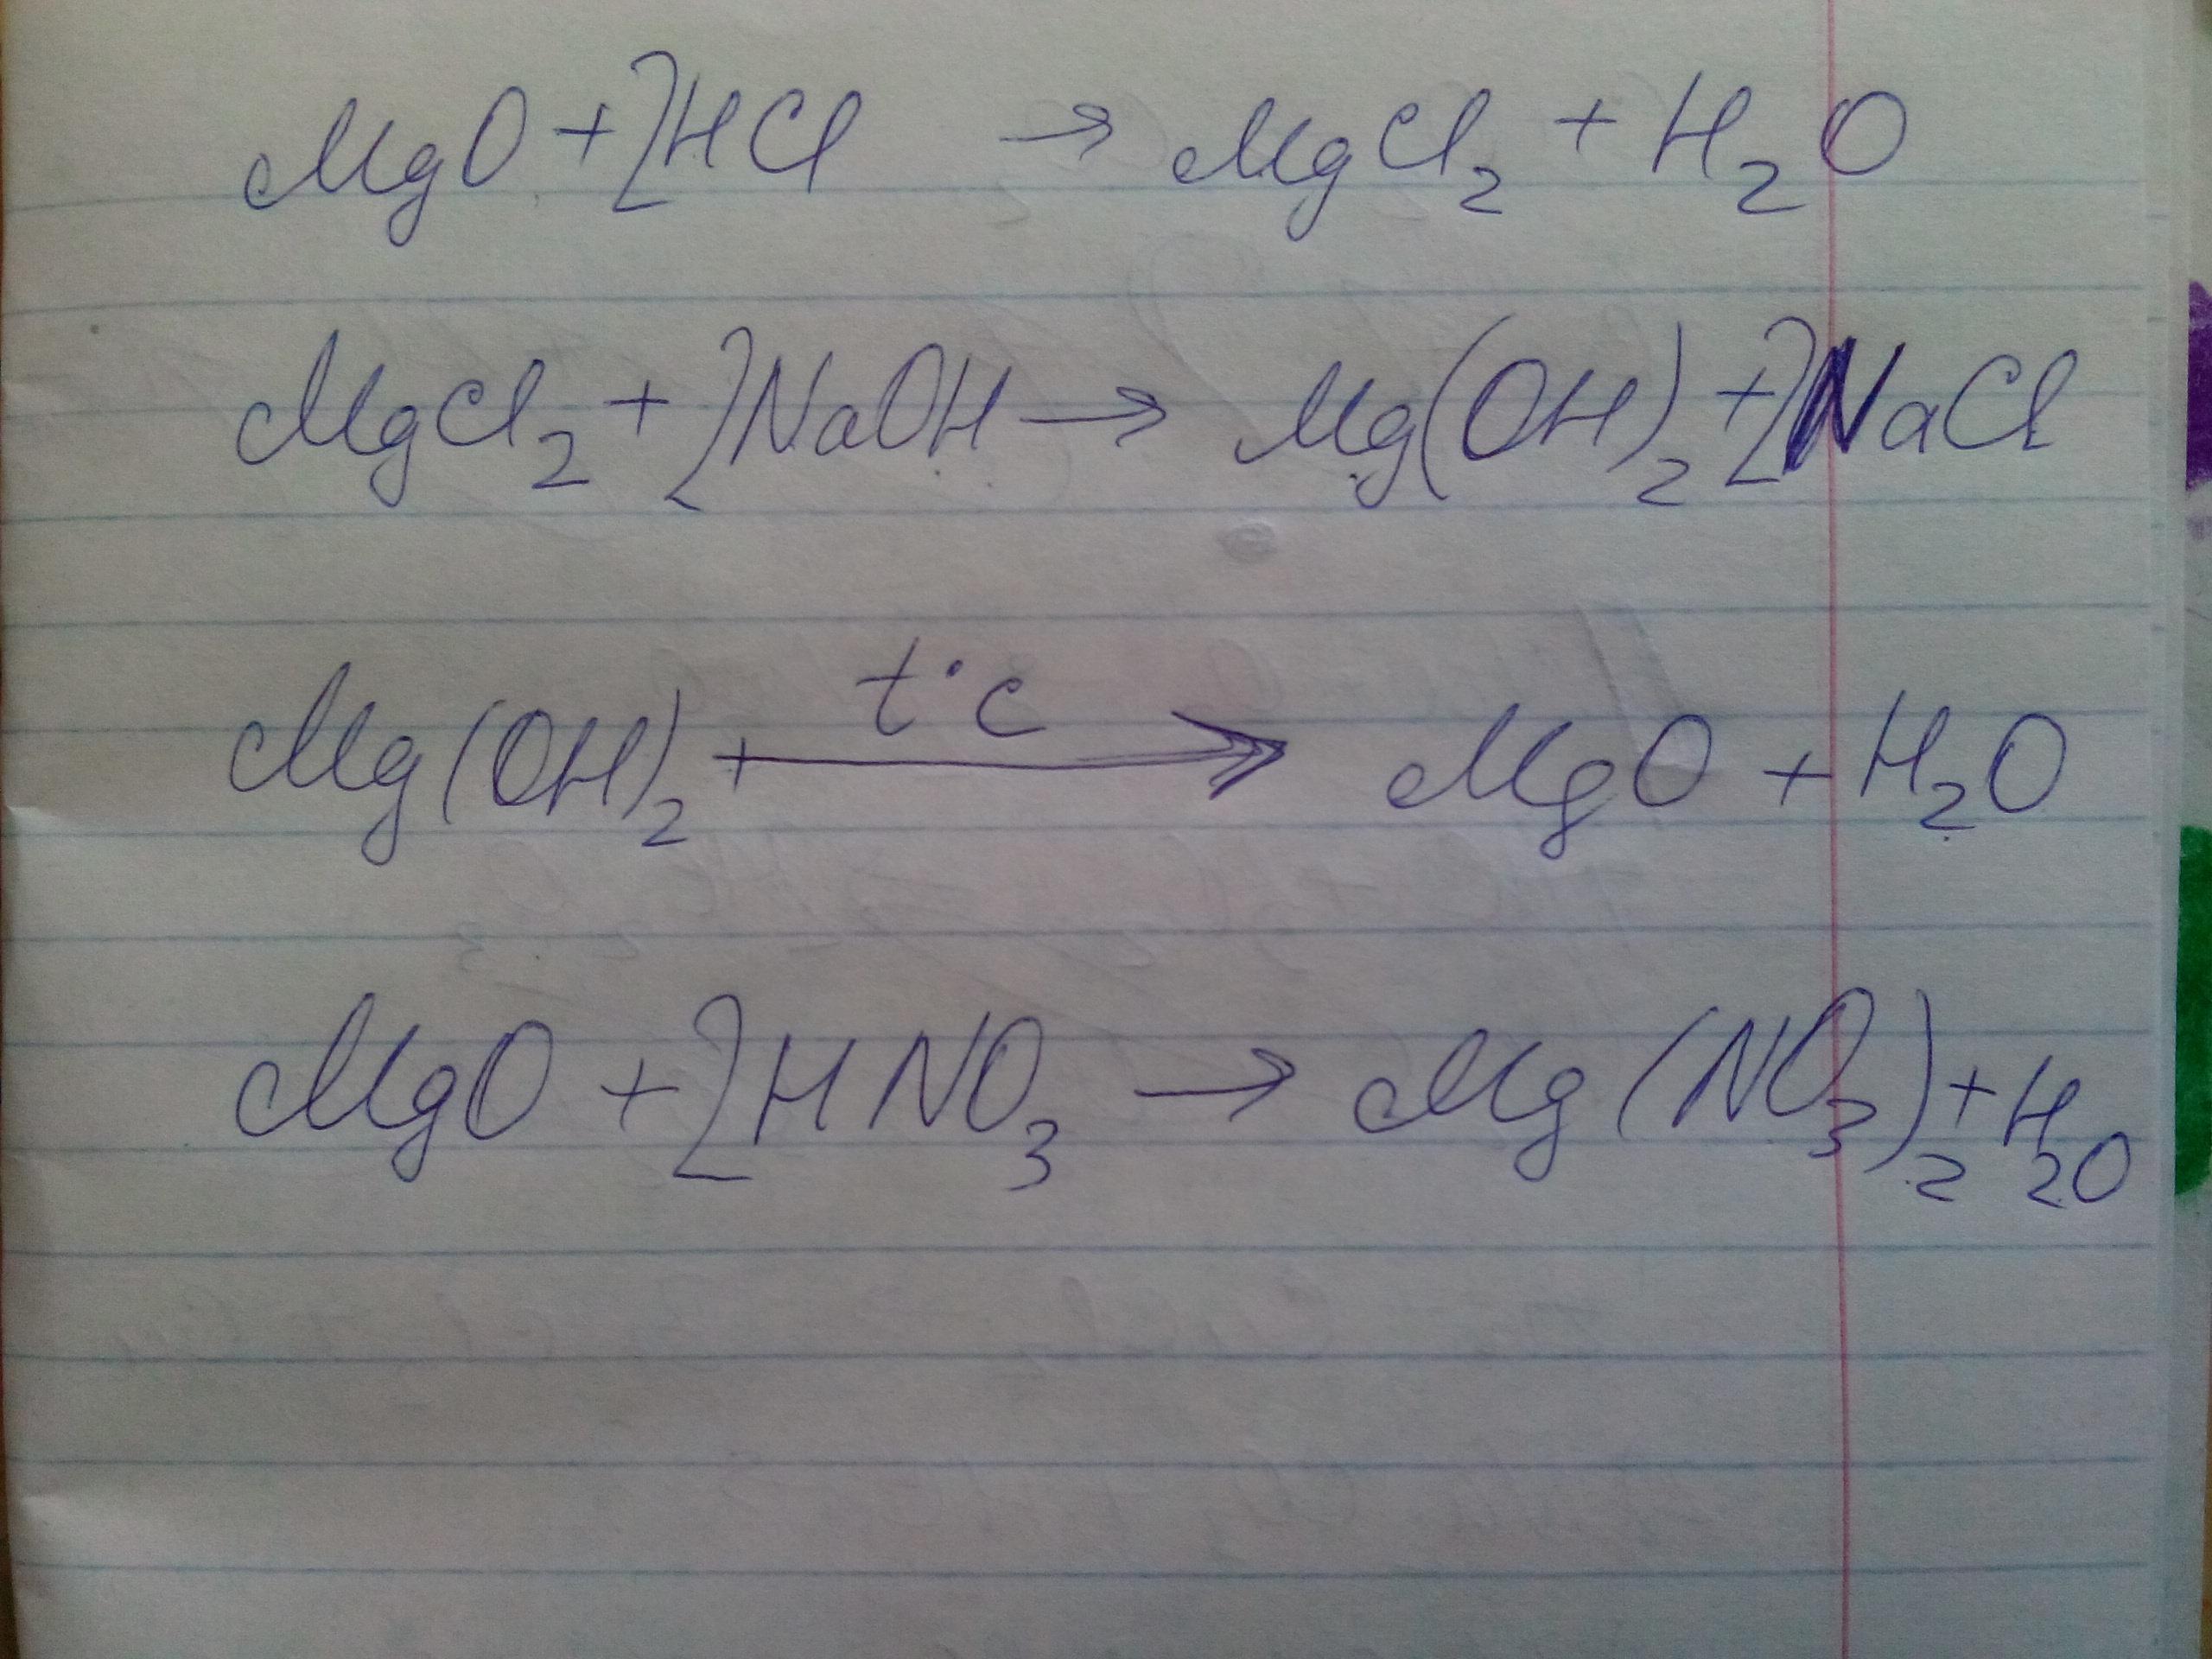 MgO + 2HCl → MgCl₂ + H₂O
MgCl₂ + 2NaOH → Mg(OH)₂ + 2NaCl
t°c
Mg(OH)₂ + → MgO + H₂O
MgO + 2HNO₃ → Mg(NO₃)₂ + H₂O